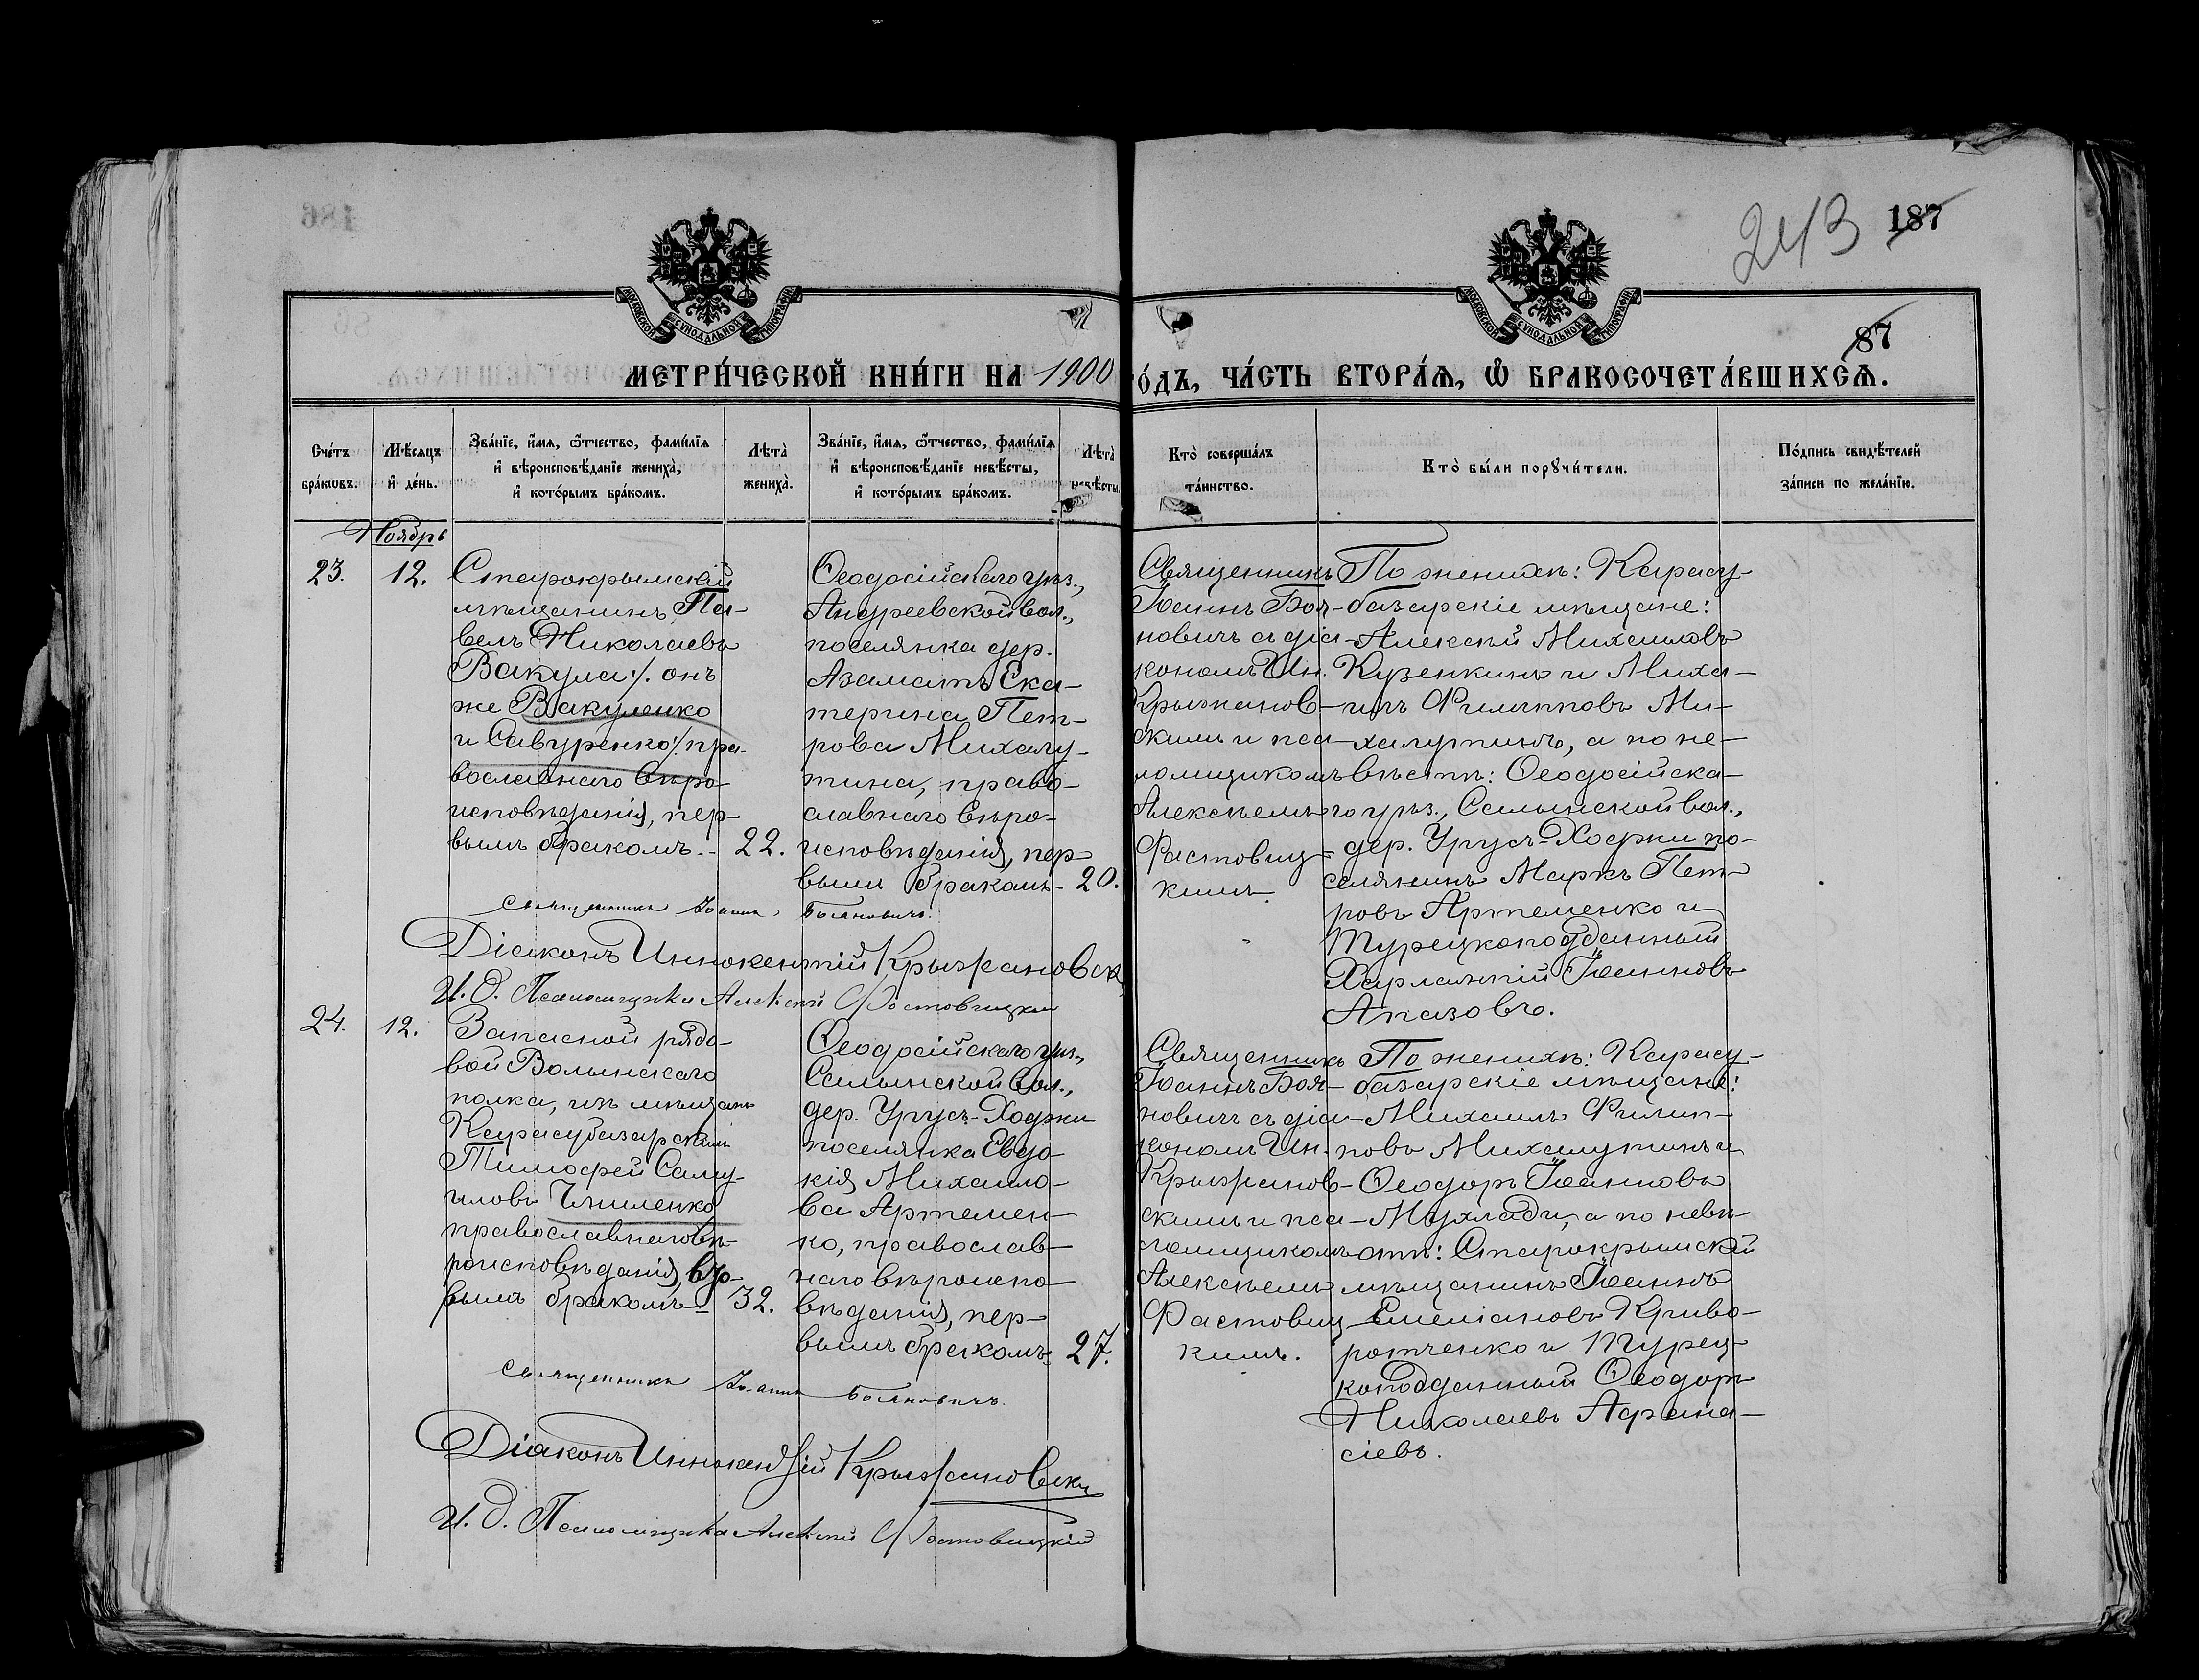 243
187
87
МОСКОВСКОЙ СѴНОДАЛЬНОЙ ТИПОГРАФІИ
МОСКОВСКОЙ СѴНОДАЛЬНОЙ ТИПОГРАФІИ
МЕТРИ́ЧЕСКОЙ КНИ́ГИ НА 1900 ГО́ДЪ, ЧА́СТЬ ВТОРА́Ѧ, Ѡ БРАКОСОЧЕТА́ВШИХСѦ.
Сче́тъ
бра́кѡвъ.
Мѣ́сяцъ
и҆ де́нь.
Зва́нїе, и҆́мя, ѻ҆́тчество, фами́лїя
и҆ вѣроисповѣ́данїе жениха̀,
и҆ кото́рымъ бра́комъ.
Лѣта̀
жениха̀.
Зва́нїе, и҆́мя, ѻ҆́тчество, фами́лїя
и҆ вѣроисповѣ́данїе невѣ́сты,
и҆ кото́рымъ бра́комъ.
Лѣта̀
невѣ́сты.
Кто̀ соверша́лъ
та́инство.
Кто̀ бы́ли порꙋчи́тели.
По́дпись свидѣ́телей
за́писи по жела́нїю.
Ноябрь
23.
12.
Старокрымскій
мѣщанинъ Па-
велъ Николаевъ
Вакула /. онъ
же Вакуленко
и Савуренко /. пра-
вославнаго вѣро-
исповѣданія, пер-
вымъ бракомъ.-
22.
Ѳеодосійскаго уѣз.,
Андреевской вол.,
поселянка дер.
Азаматъ Ека-
терина Пет-
рова Михалу-
тина, право-
славнаго вѣро-
исповѣданія, пер-
вымъ бракомъ-
20.
Священникъ
Іоаннъ Боя-
новичъ съ діа-
кономъ Ин.
Крыжанов-
скимъ и пса-
ломщикомъ
Алексѣемъ
Фастовиц-
кимъ.
По женихѣ: Карасу-
базарскіе мѣщане:
Алексѣй Михаиловъ
Кузенкинъ и Миха-
илъ Филипповъ Ми-
халутинъ, а по не-
вѣстѣ: Ѳеодосійска-
го уѣз., Салынской вол.,
дер. Урусъ-Ходжи по-
селянинъ Маркъ Пет-
ровъ Артеменко и
Турецкоподданный
Харлампій Іоанновъ
Апазовъ.
Священникъ Іоаннъ Бояновичъ.
Діаконъ Иннокентій Крыжановск
И. д. Псаломщика Алексѣй Фастовицкій
24.
12.
Запасной рядо-
вой Волынскаго
полка, изъ мѣщанъ
Карасубазарскій
Тимофей Саму-
иловъ Чміленко
православнаго вѣ-
роисповѣданія, вто-
рымъ бракомъ-
32.
Ѳеодосійскаго уѣз.,
Салынской вол.,
дер. Урусъ-Ходжи
поселянка Евдо-
кія Михаило-
ва Артемен-
ко, православ-
наго вѣроиспо-
вѣданія, пер-
вымъ бракомъ.
27.
Священникъ
Іоаннъ Боя-
новичъ съ діа-
кономъ Ин.
Крыжанов-
скимъ и пса-
ломщикомъ
Алексѣемъ
Фастовиц-
кимъ.
По женихѣ: Карасу-
базарскіе мѣщане:
Михаилъ Филип-
повъ Михалутинъ и
Ѳеодоръ Іоанновъ
а по невѣ-
стѣ: Старокрымскій
мѣщанинъ Іоаннъ
Емеліановъ Криво-
ротченко и Турец-
коподданный Ѳеодоръ
Николаевъ Афана-
сіевъ.
Священникъ Іоаннъ Бояновичъ.
Діаконъ Иннокентій Крыжановски
И. д. Псаломщика Алексѣй Фастовицкій